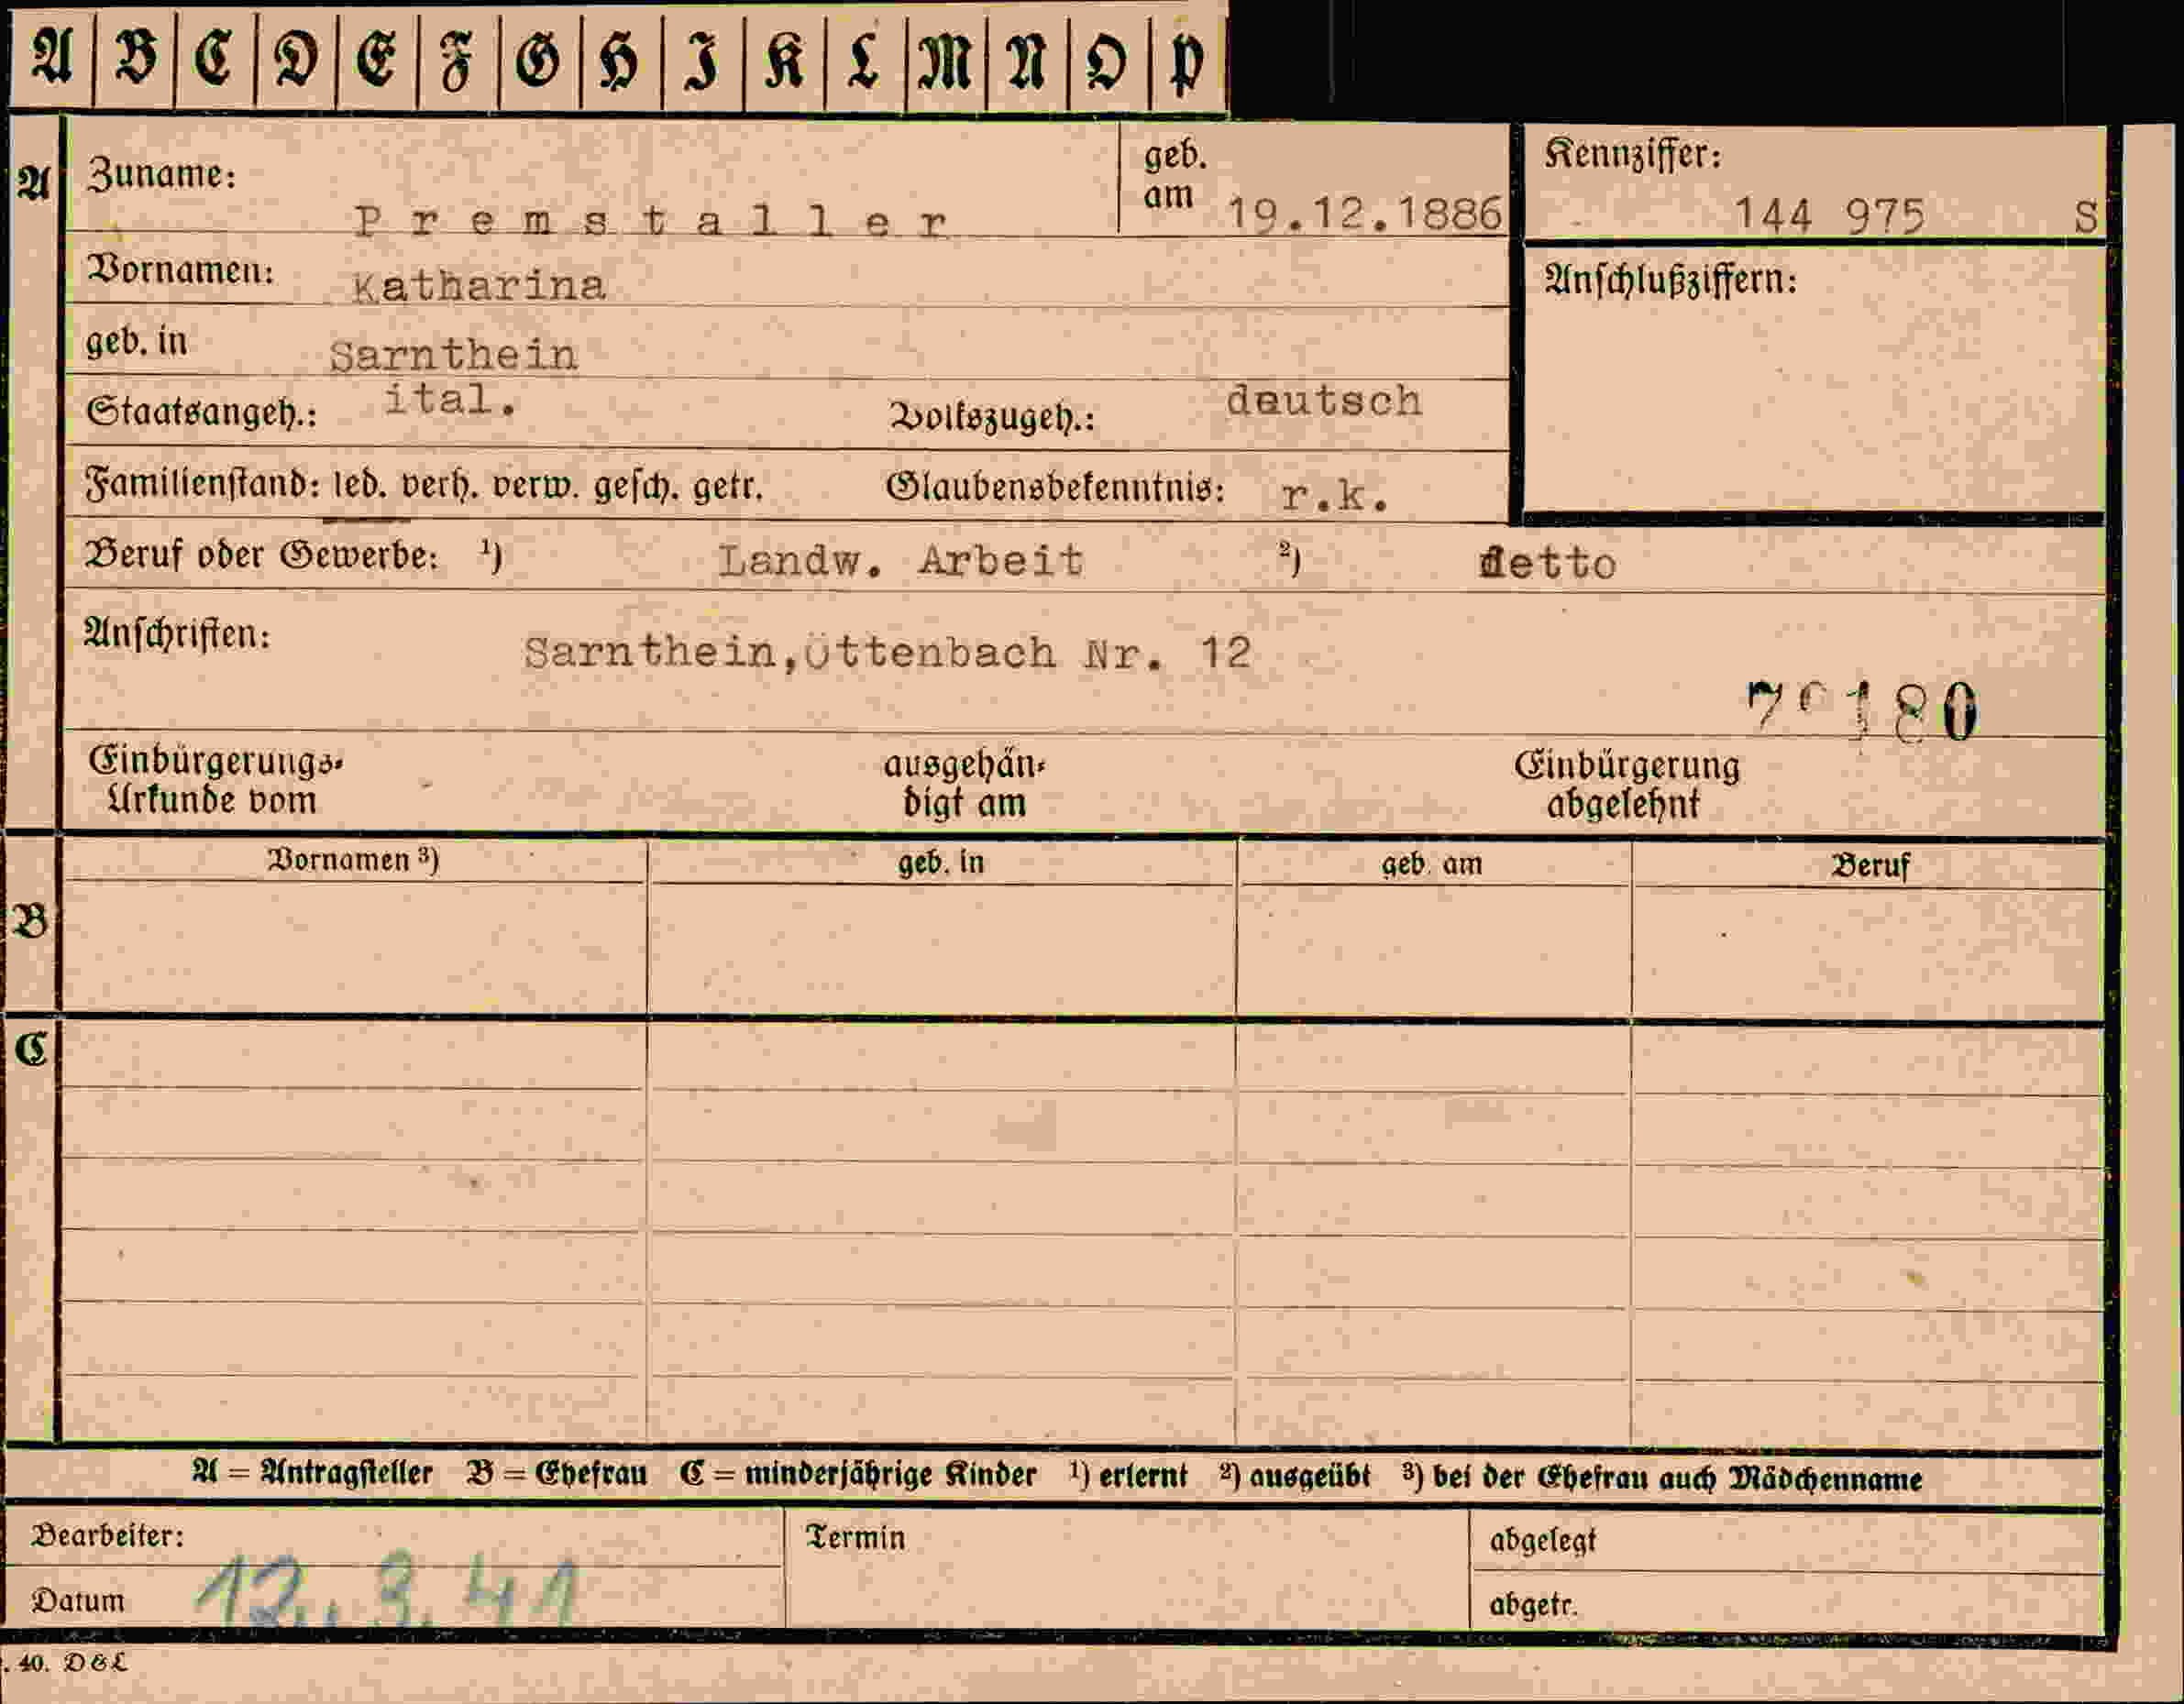 A B C D E F G H I K L M N O P
A
Zuname: Premstaller
geb. am 19.12.1886
Kennziffer: 144 975 S
Vornamen: Katharina
Anschlußziffern:
geb. in Sarnthein
Staatsangeh.: ital. Volkszugeh.: deutsch
Familienstand: led. verh. verw. gesch. getr. Glaubensbekenntnis: r.k.
Beruf oder Gewerbe: ¹) Landw. Arbeit ²) detto
Anschriften: Sarnthein,Öttenbach Nr. 12
Einbürgerungs- ausgehän- Einbürgerung
Urkunde vom digt am abgelehnt
B
Vornamen ³) geb. in geb. am Beruf
C
A = Antragsteller B = Ehefrau C = minderjährige Kinder ¹) erlernt ²) ausgeübt ³) bei der Ehefrau auch Mädchenname
Bearbeiter: Termin abgelegt
Datum 12.3.41 abgetr.
. 40. D&L